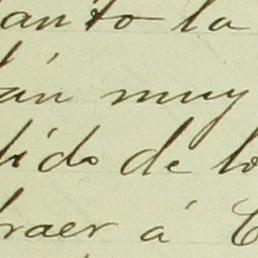 anto la
án muy
dido de lo
raer á C